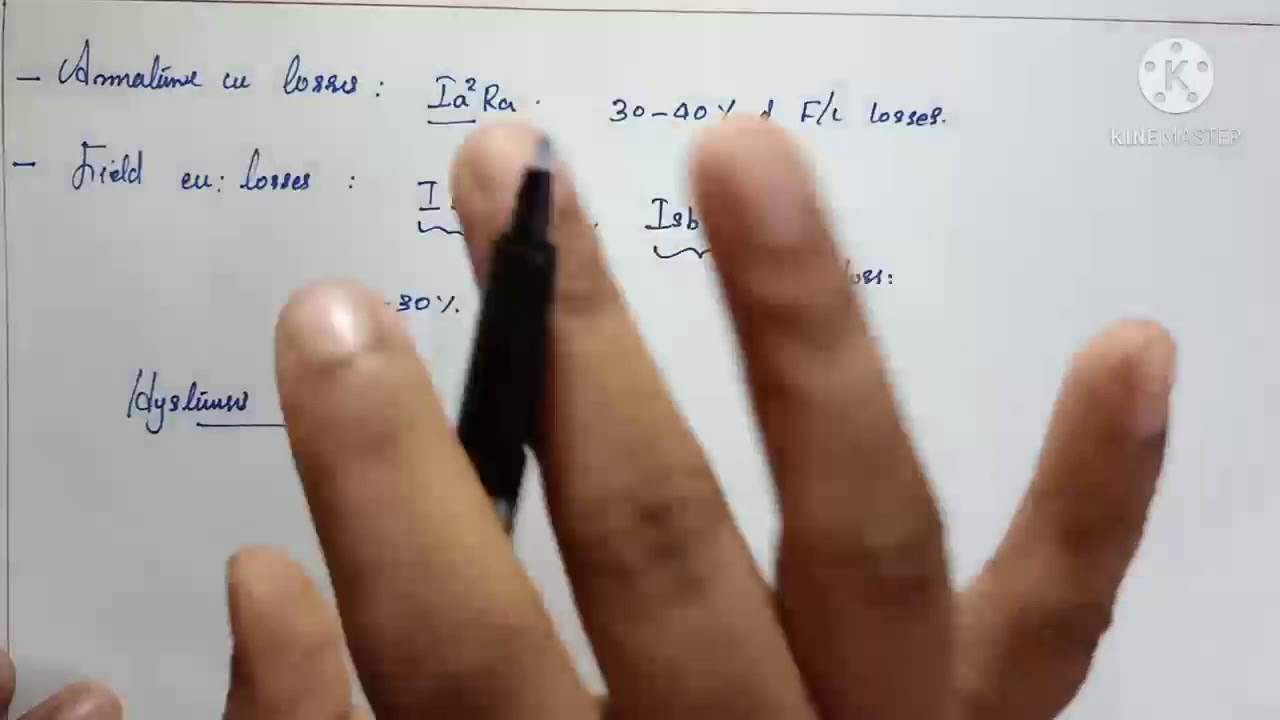 - Armature cu losses : Ia²Ra. 30-40% of F/L losses.
- Field cu: losses : I Isb
loss:
-30%.
K
KINEMASTER